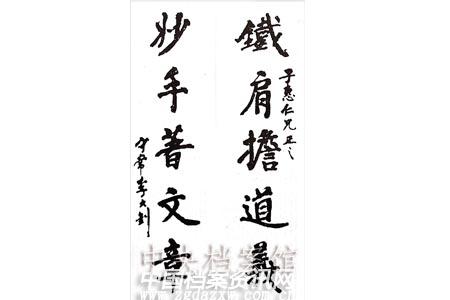 鐵肩擔道義
子惠仁兄正之
妙手著文章
守常李大釗
中央档案馆
中国档案资讯网